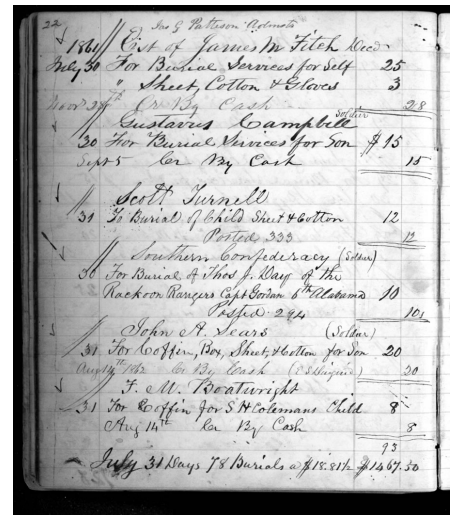 22 Jno G Pattison Admnstr
1861 Est of James M Fitch Decd
July 30 For Burial Services for Self 25
" Sheet, Cotton & Gloves 3
Novr 27th Cr By Cash 28
Gustavus Campbell Soldier
30 For Burial Services for Son $15
Sept 5 Cr By Cash 15
Scott Turnell
31 To Burial of Child Sheet & Cotton 12
Posted 333 12
Southern Confederacy (Soldier)
30 For Burial of Thos J. Day of the
Rackoon Rangers Capt Gordan 6th Alabama 10
Posted 294 10
John A. Sears (Soldier)
31 For Coffin, Box, Sheet, & Cotton for Son 20
Augt 14th 1862 Cr By Cash 20
F. M. Boatwright
31 For Coffin for S H Colemans Child 8
Aug 14th Cr By Cash 8
93
July 31 Days 78 Burials a $18.81½ $1467.50